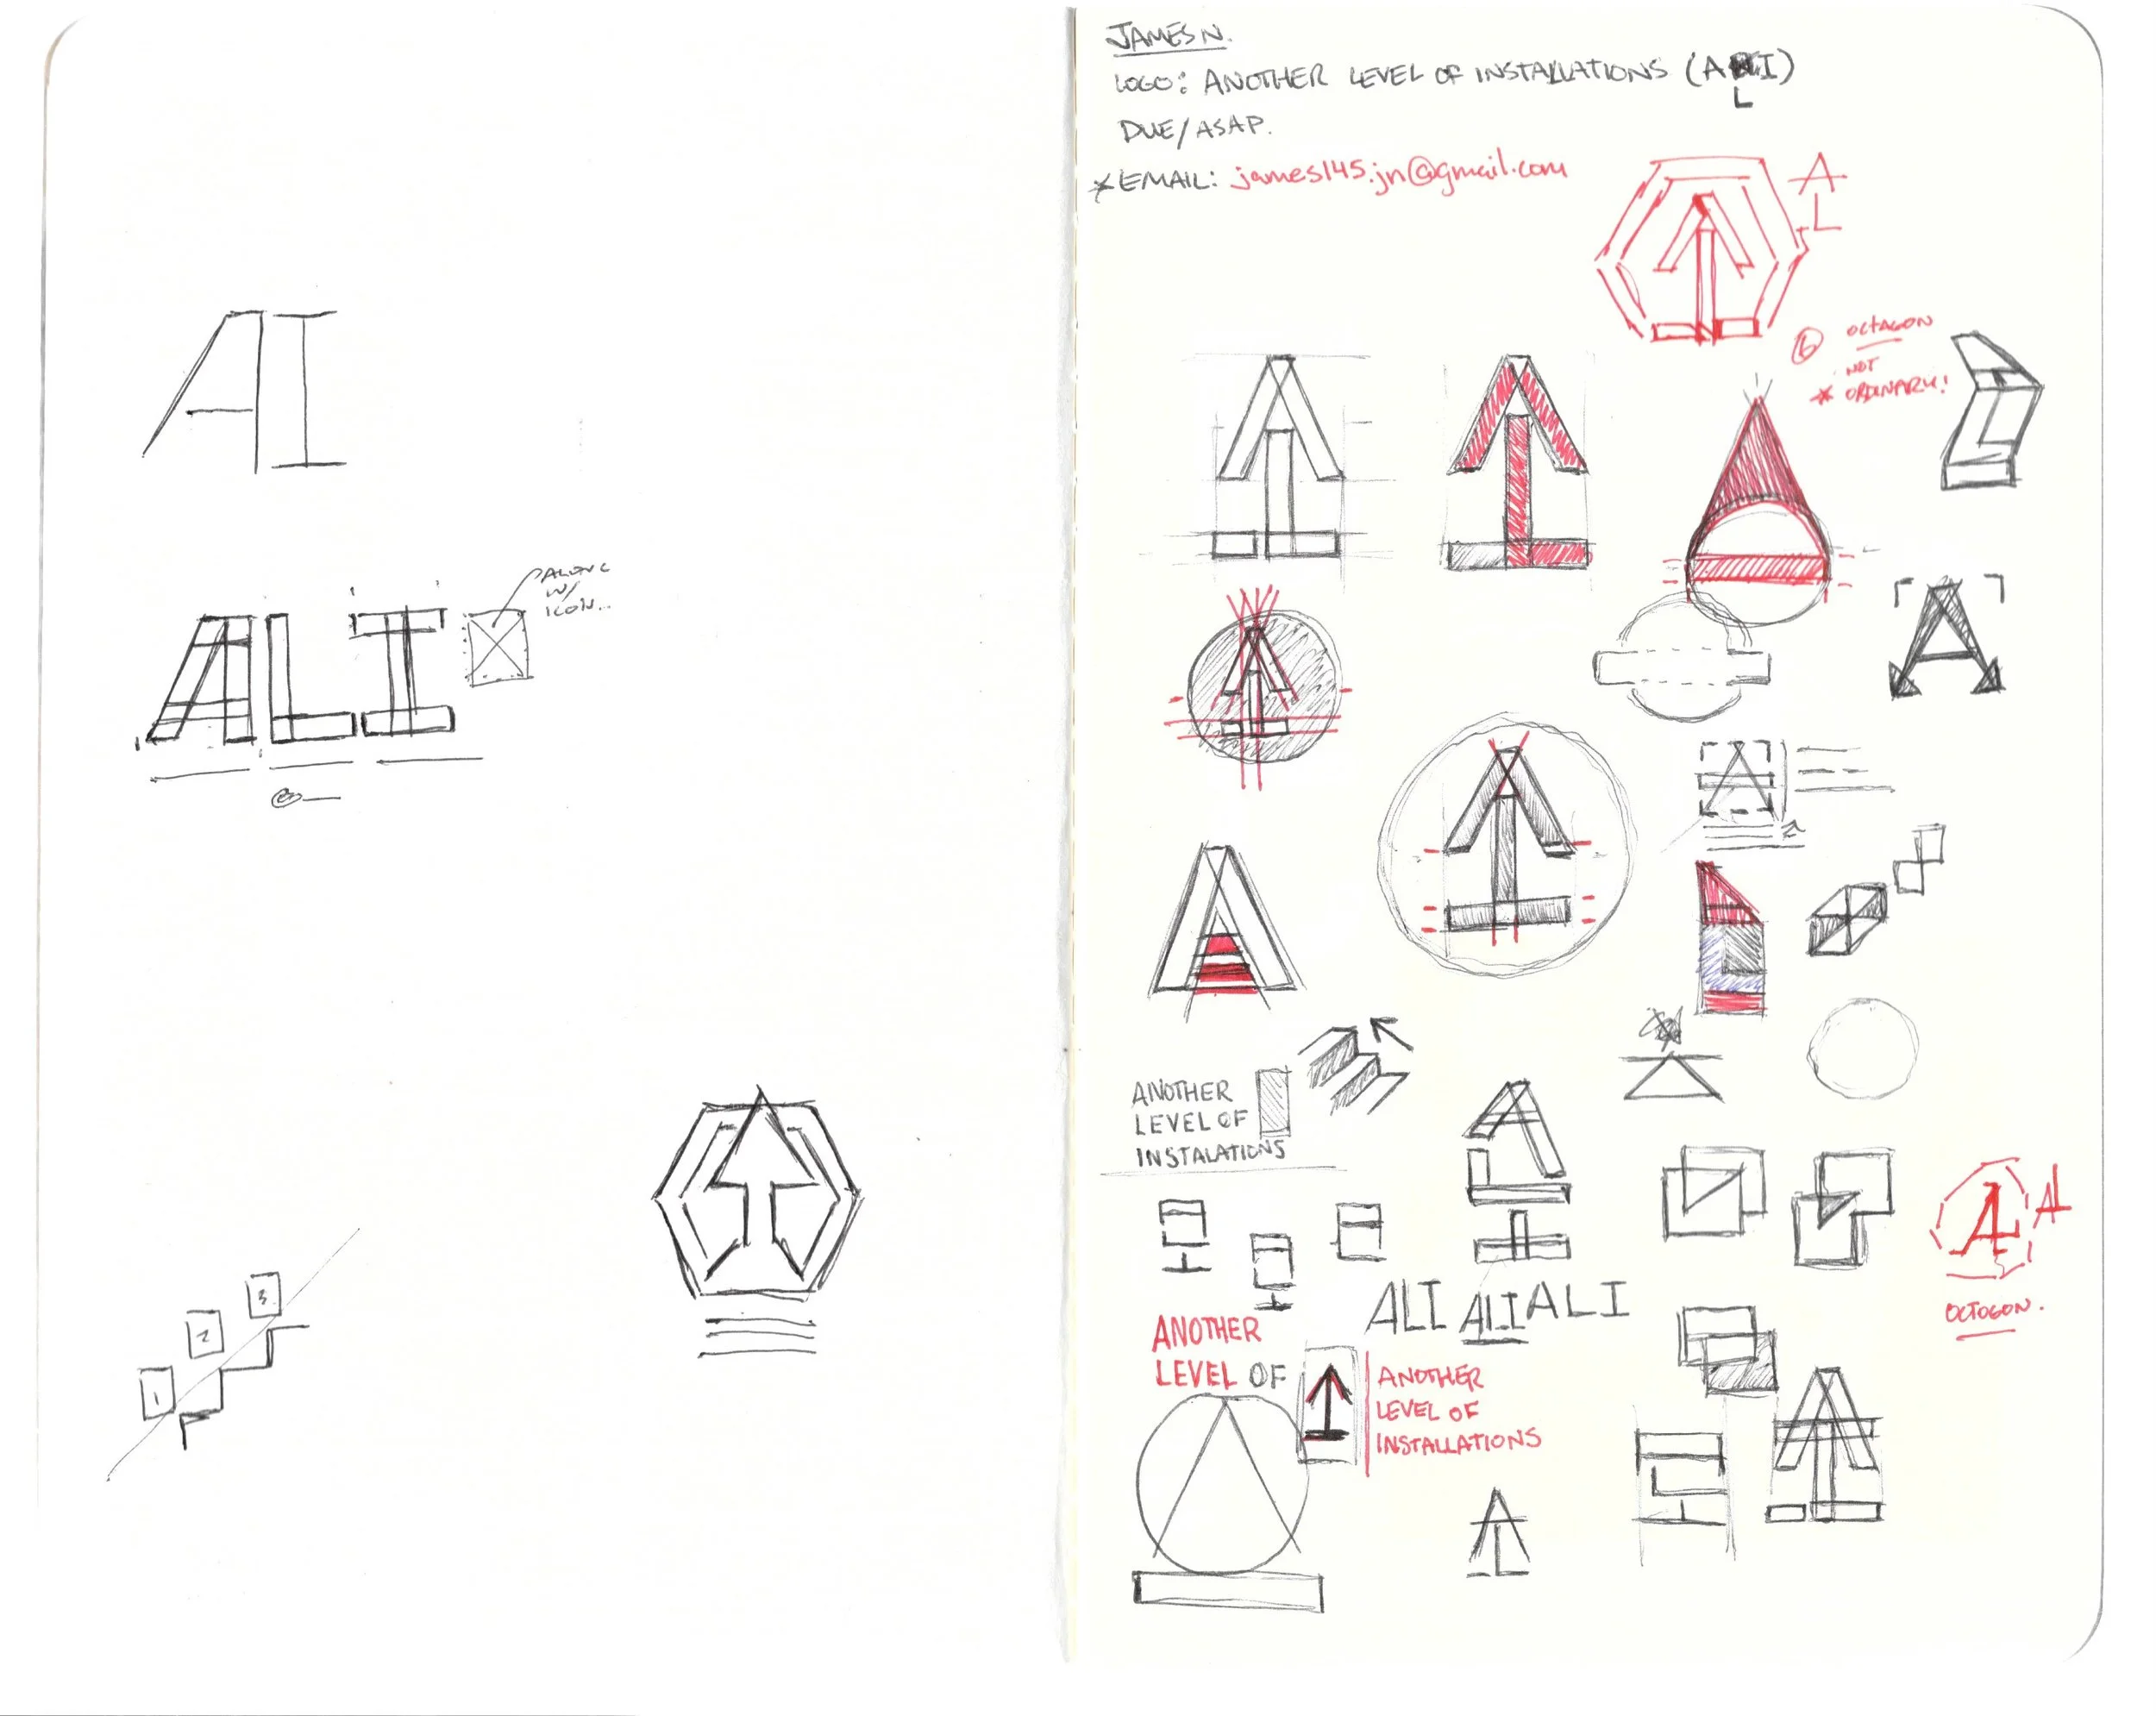 AI
ALI
ALONG
W/
ICON..
1
2
3.
JAMES N.
LOGO: ANOTHER LEVEL OF INSTALLATIONS (A I)
L
DUE/ASAP.
*EMAIL: james145.jn@gmail.com
A
L
6
OCTAGON
NOT
* ORDINARY!
ANOTHER
LEVEL OF
INSTALATIONS
ALI ALI ALI
AL
OCTOGON.
ANOTHER
LEVEL OF
ANOTHER
LEVEL OF
INSTALLATIONS